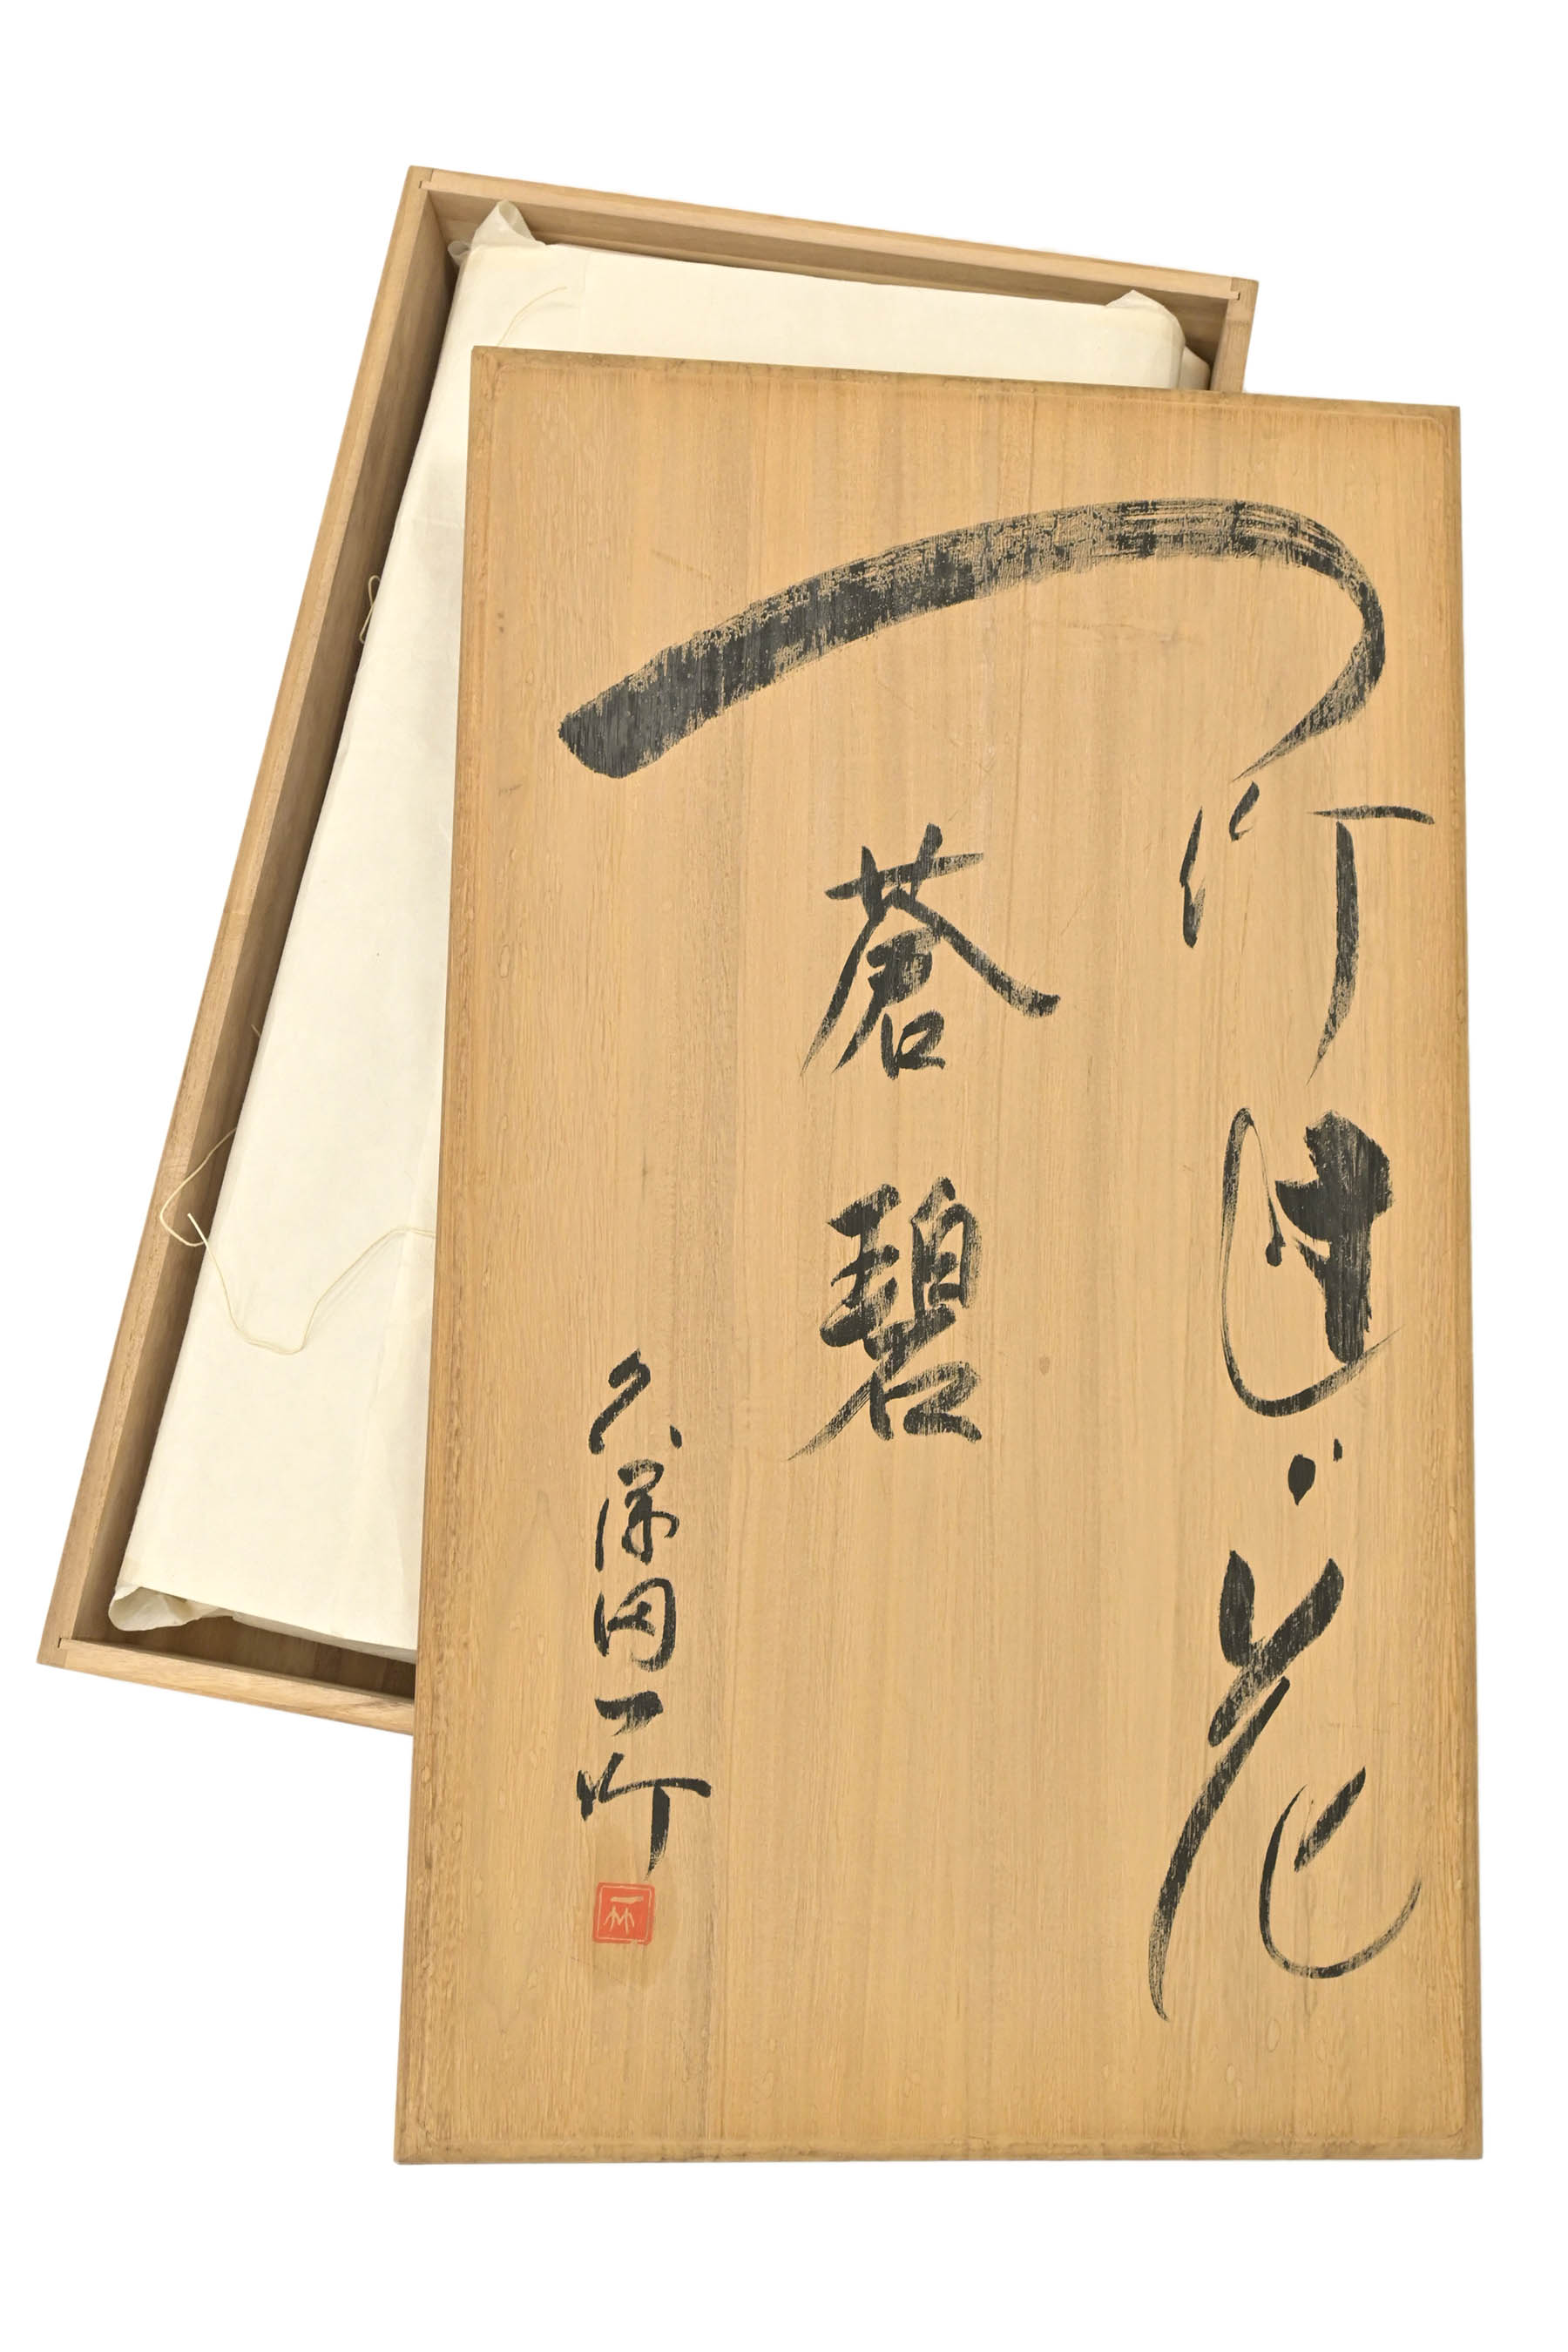 つ辻が花
蒼碧
久保田一竹
一竹